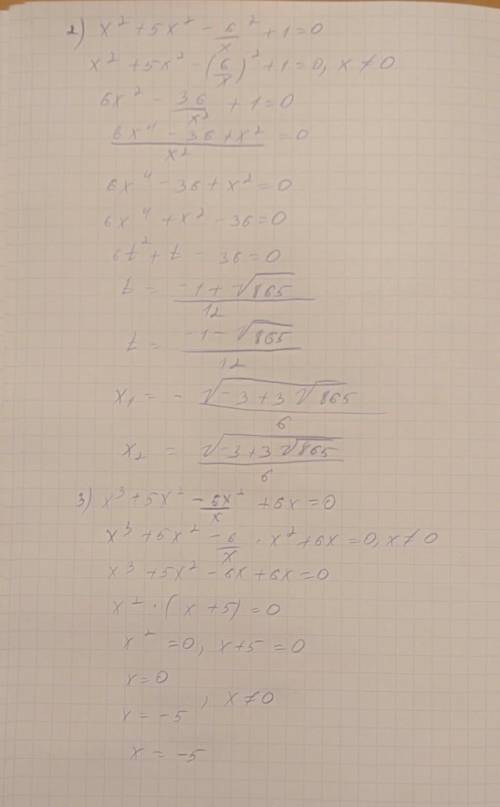 2) x² + 5x² - 6/x ² + 1 = 0
x² + 5x² - (6/x)² + 1 = 0, x ≠ 0
6x² - 36/x² + 1 = 0
(6x⁴ - 36 + x²)/x² = 0
6x⁴ - 36 + x² = 0
6x⁴ + x² - 36 = 0
6t² + t - 36 = 0
t = (-1 + √865)/12
t = (-1 - √865)/12
x₁ = - √(-3 + 3√865)/6
x₂ = √(-3 + 3√865)/6
3) x³ + 5x² - 6x²/x + 6x = 0
x³ + 5x² - 6/x · x² + 6x = 0, x ≠ 0
x³ + 5x² - 6x + 6x = 0
x² · (x + 5) = 0
x² = 0, x + 5 = 0
x = 0
x = -5 , x ≠ 0
x = -5